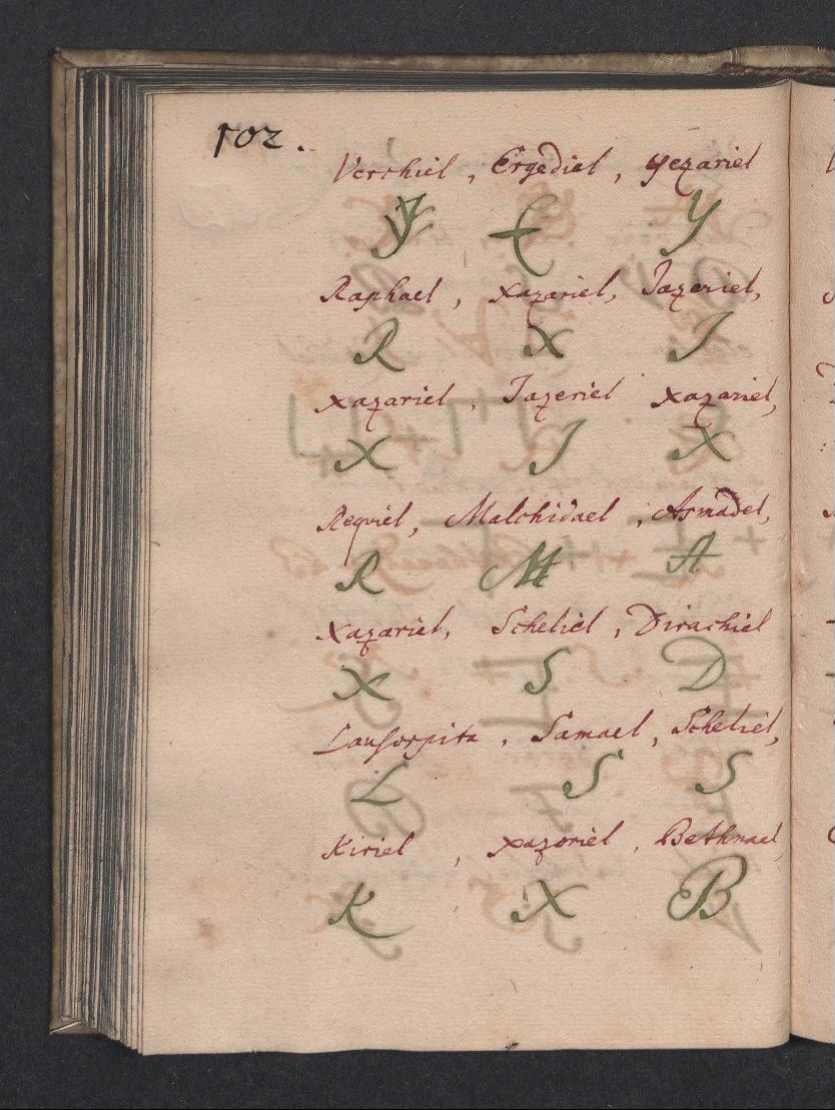 102.
Verchiel, Ergediel, yezariel
V E Y
Raphael, xazariel, Jazeriel,
R X J
xazariel, Jazeriel xazariel,
X J X
Requiel, Malchidael, Asmadel,
R M A
Xazariel, Scheliel, Dirachiel
X S D
Samael, Scheliel,
L S S
Kiriel, xazoriel, Bethnael
K X B